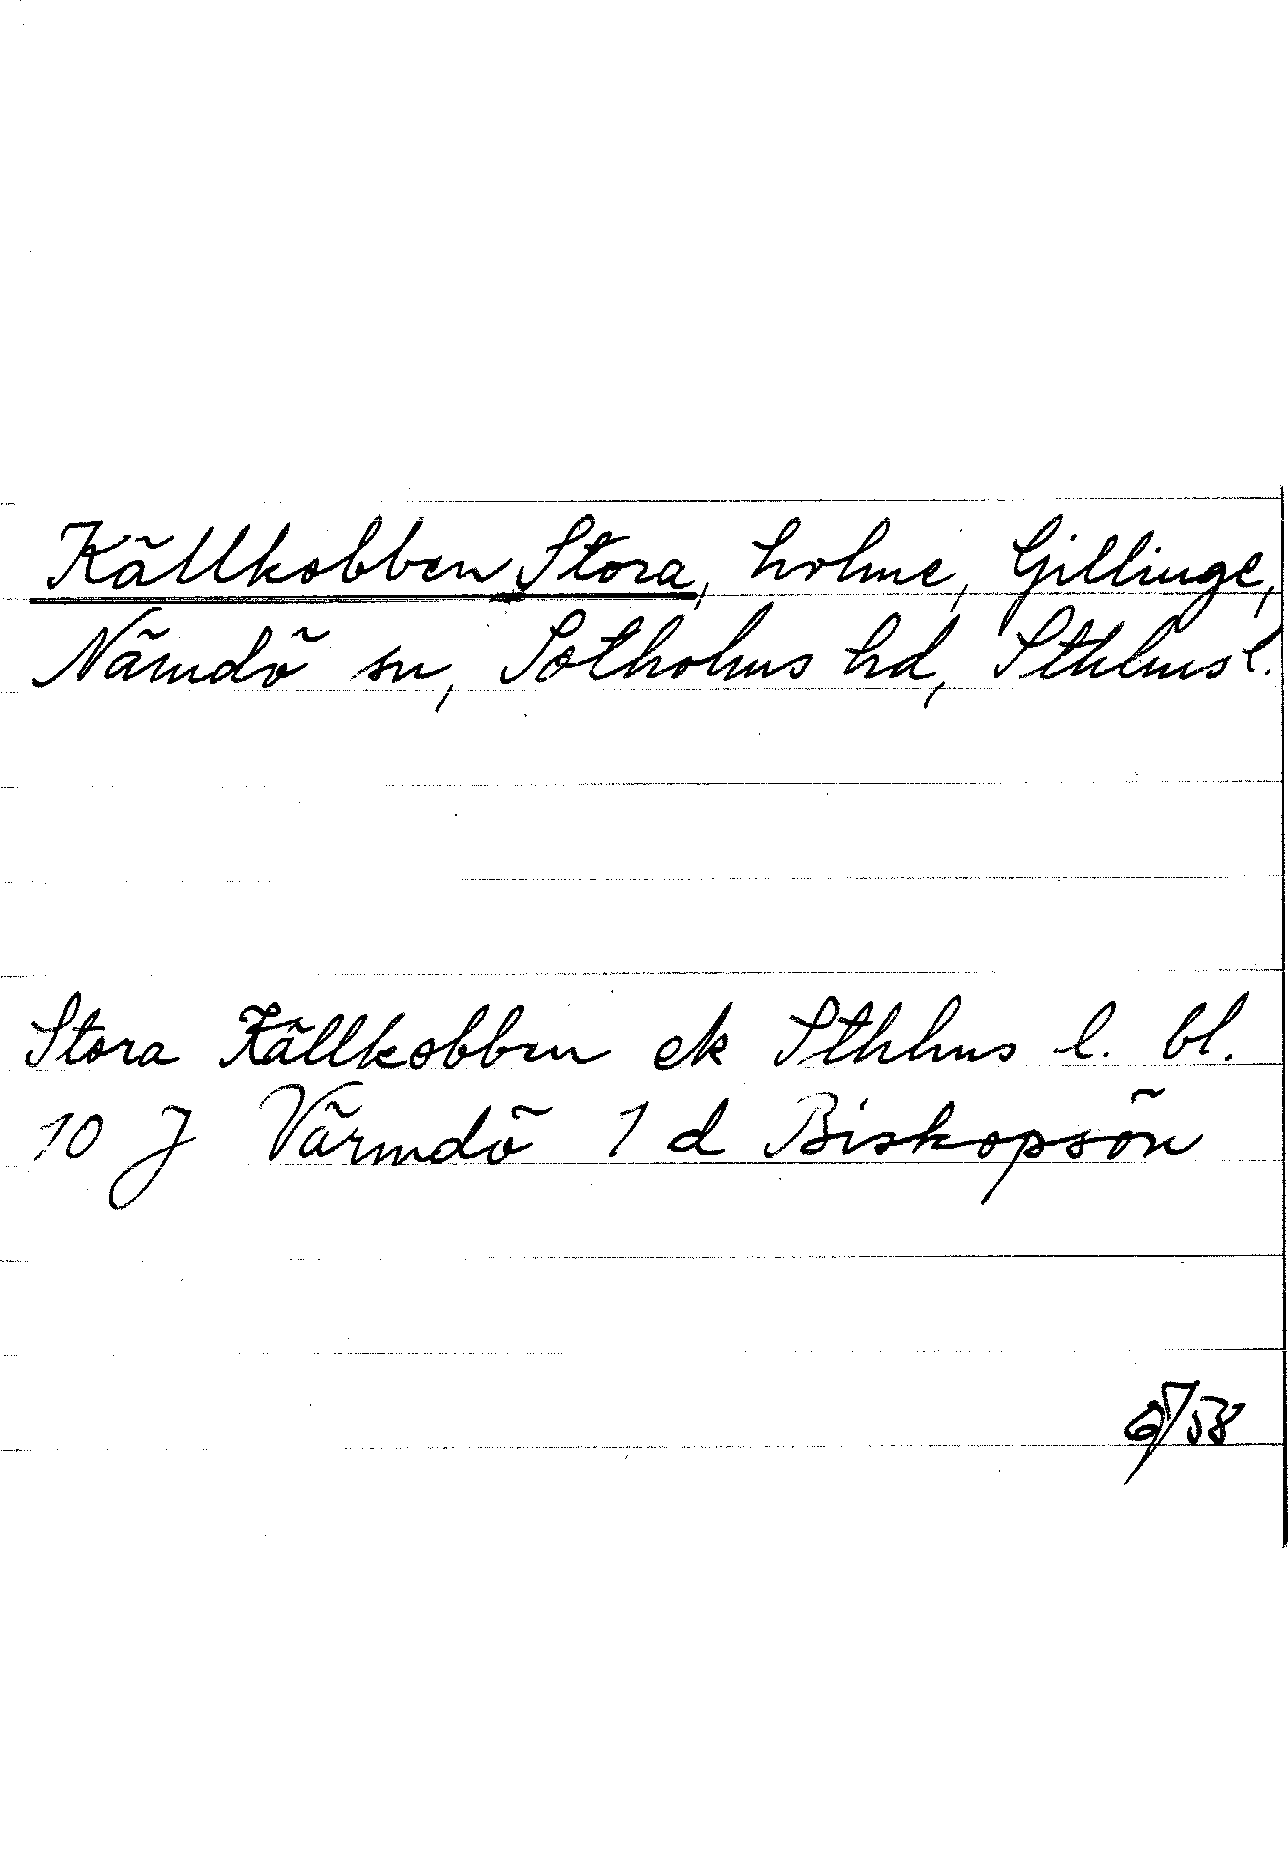 Källkobben Stora, holme, Gillinge,
Nämdö sn, Sotholms hd, Sthlms l.
Stora Källkobben ek Sthlms l. bl.
10 J Värmdö 1 d Biskopsön
/58